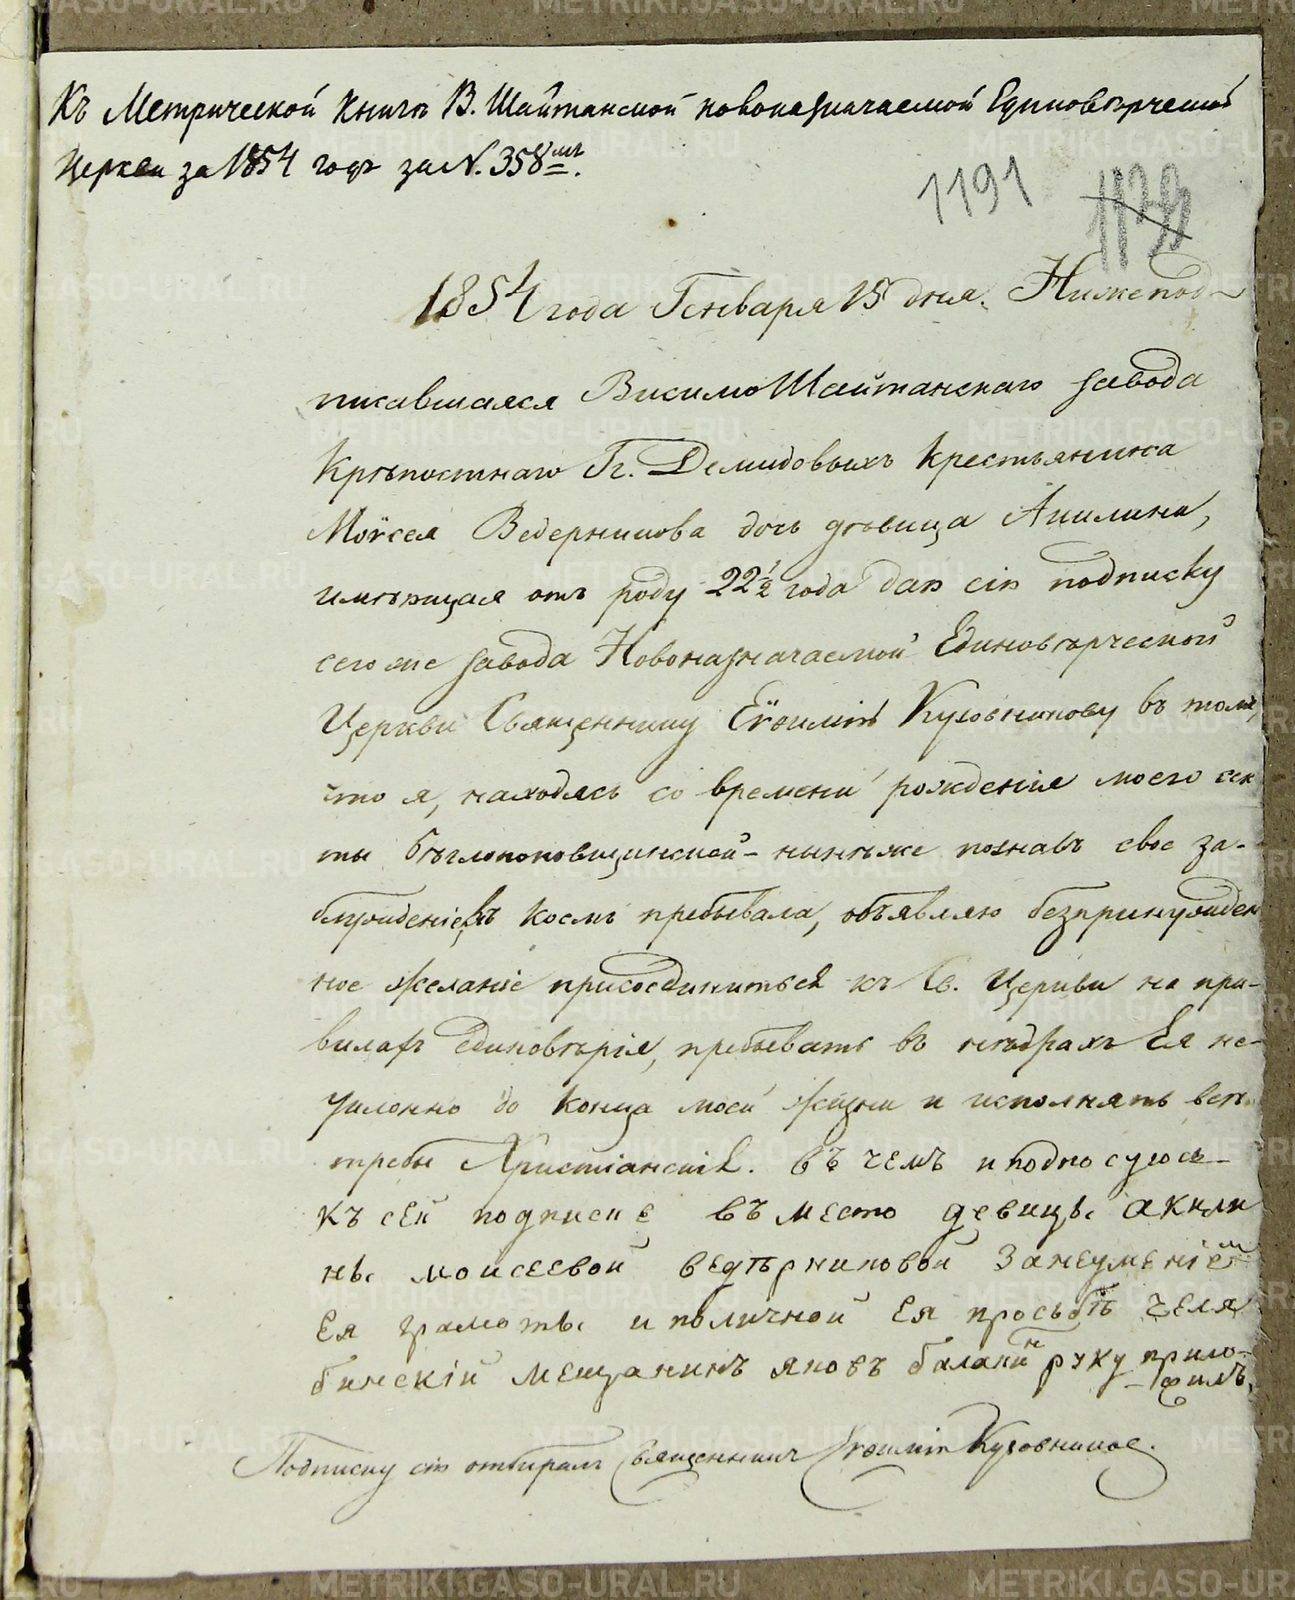 Къ Метрической книгѣ В. Шайтанской новоназначаемой Единовѣрческой
Церкви за 1854 годъ за N. 358мъ.
1191
1854 года Генваря 15 дня. Нижепод-
писавшаяся ВисимоШайтанскаго завода
Крѣпостнаго Гг. Демидовыхъ крестьянина
Моѵсея Ведерникова дочь дѣвица Акилина,
имѣющая отъ роду 22½ года даю сію подписку
сего же завода Новоназначаемой Единовѣрческой
Церкви Священнику Еѵѳимію Кузовникову въ томъ,
что я, находясь со времени рожденія моего сек
ты бѣглопоповщинской - нынѣже познавъ свое за-
блужденіе, въ коемъ пребывала, объявляю безпринужден
ное желаніе присоединиться къ Св. Церкви на пра-
вилахъ единовѣрія, пребывать въ нѣдрахъ Ея не-
уклонно до конца моей жизни и исполнять всѣ
требы Христіанскія. въ чемъ и подпосуюсь
къ сей подписке въместо девицы акили
ны моисеевой ведѣрниковой Занеумениемъ
Ея грамоты и поличной Ея просьбѣ челя
бинскій мещанинъ яковъ балакин руку прило-
жилъ.
Подписку сію отбиралъ Священникъ Еѵѳимій Кузовниковъ.
METRIKI.GASO-URAL.RU